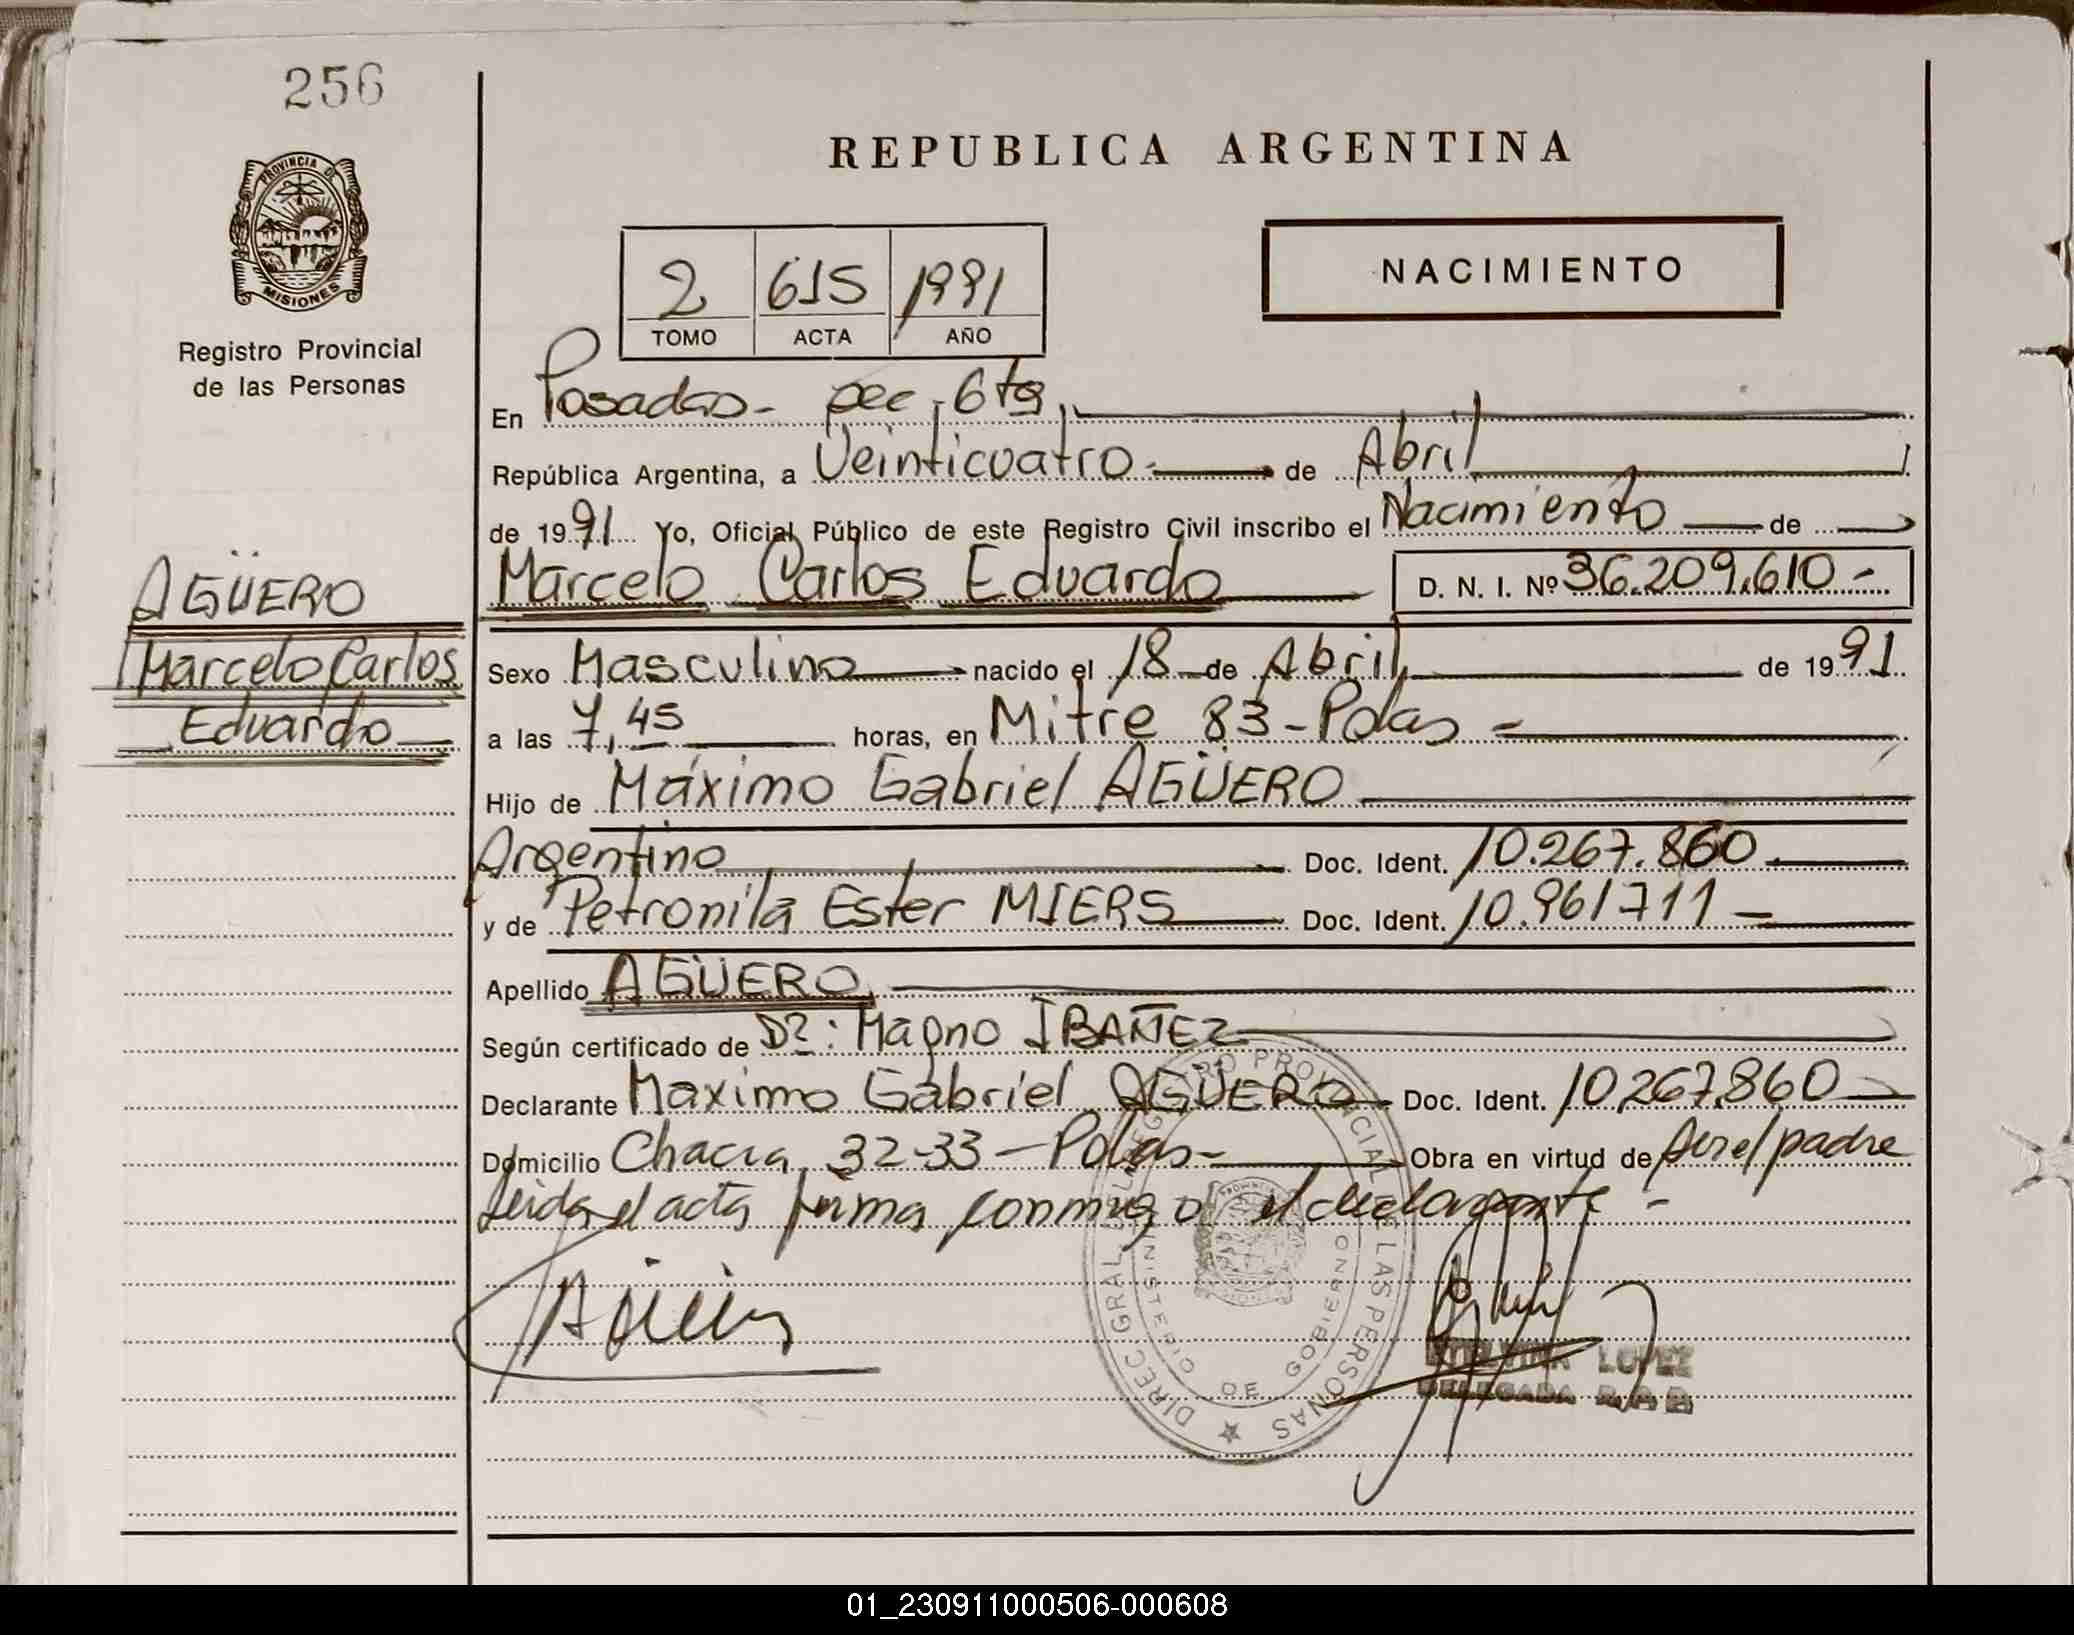 256
REPUBLICA ARGENTINA
PROVINCIA DE
MISIONES
Registro Provincial
de las Personas
2 615 1991
TOMO ACTA AÑO
NACIMIENTO
En Posadas - sec. 6ta
República Argentina, a Veinticuatro - de Abril
de 1991 Yo, Oficial Público de este Registro Civil inscribo el Nacimiento de
Marcelo Carlos Eduardo D. N. I. Nº 36.209.610 -
AGÜERO
Marcelo Carlos
Eduardo
Sexo Masculino nacido el 18 de Abril de 1991
a las 7,45 horas, en Mitre 83 - Pdas -
Hijo de Máximo Gabriel AGÜERO
Argentino Doc. Ident. 10.267.860
y de Petronila Ester MIERS Doc. Ident. 10.961711 -
Apellido AGÜERO
Según certificado de Dr: Magno IBAÑEZ
Declarante Maximo Gabriel AGÜERO Doc. Ident. 10.267.860
Domicilio Chacra 32-33 - Pdas - Obra en virtud de ser el padre
Leida el acta firma conmigo el declarante -
DIREC GRAL DEL REGISTRO PROVINCIAL DE LAS PERSONAS
MINISTERIO DE GOBIERNO
LOPEZ
DELEGADA
01_230911000506-000608